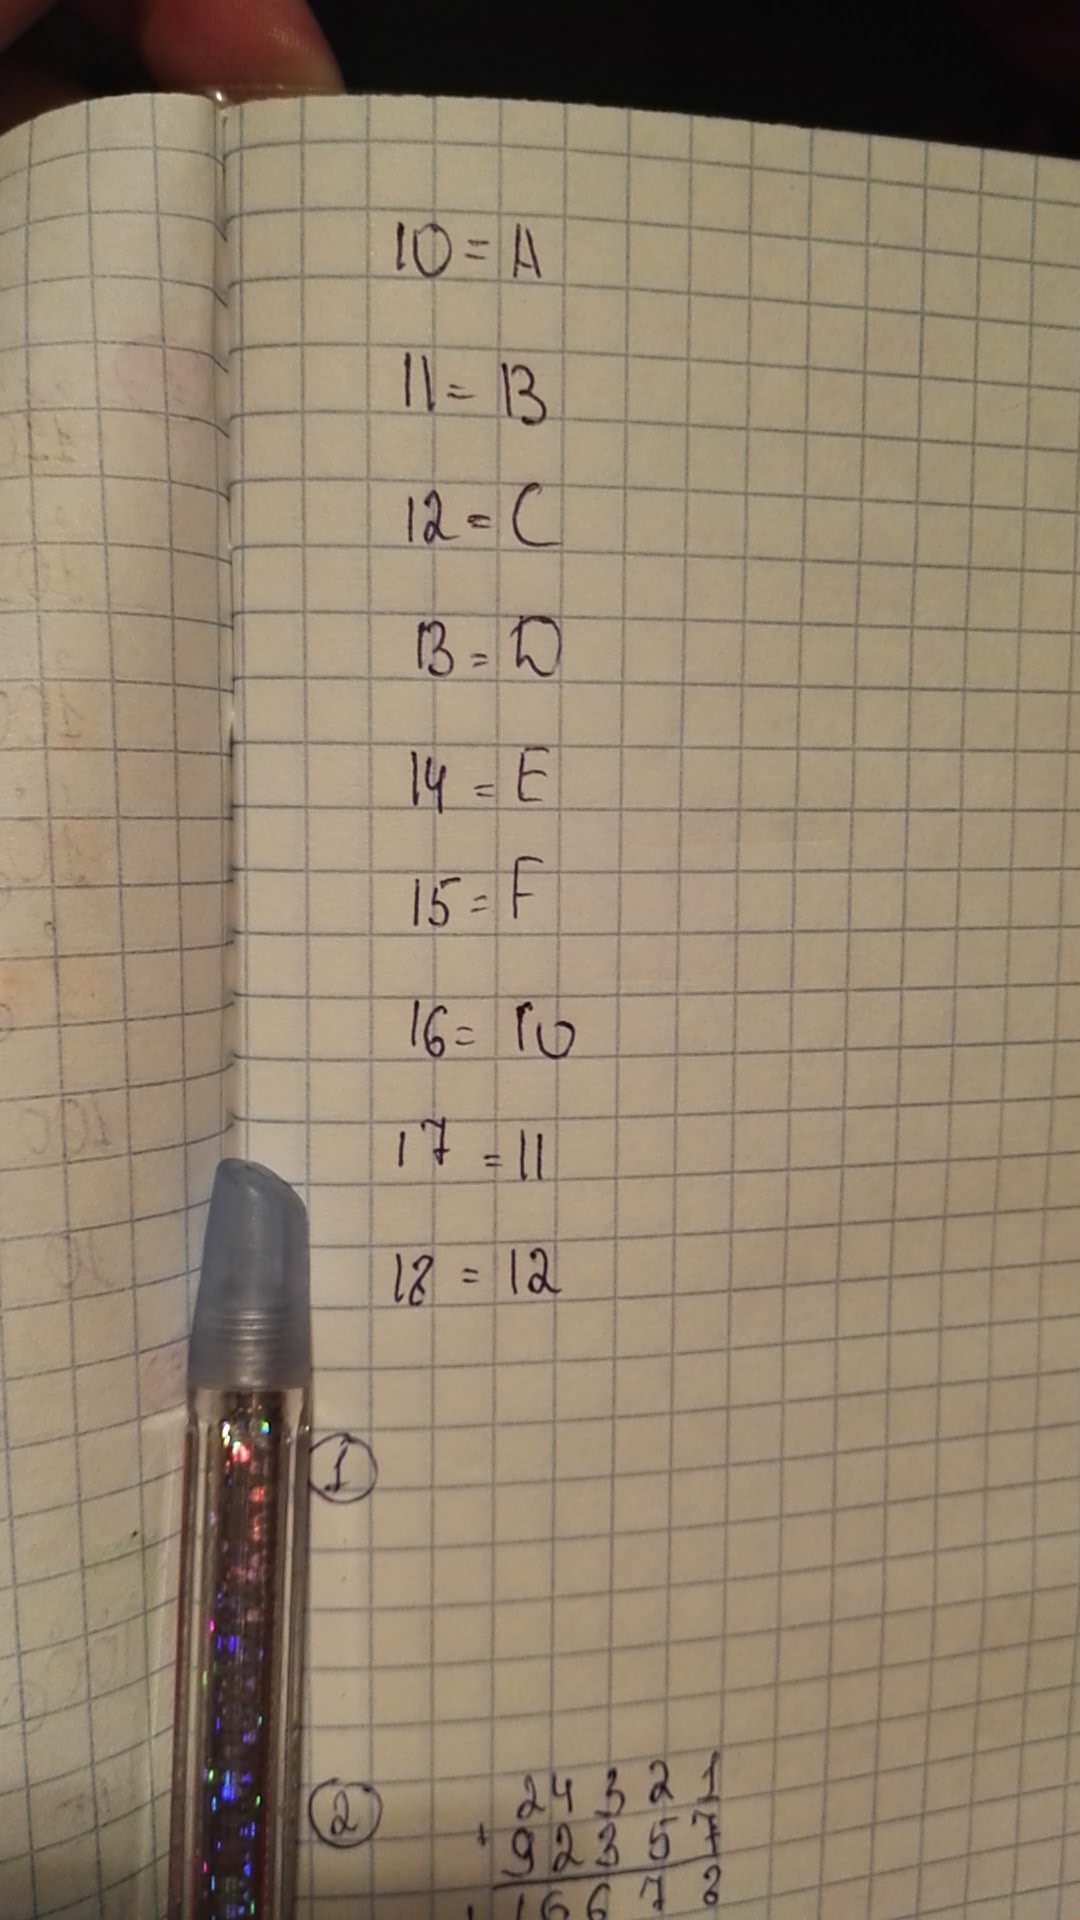 10 = A
11 = B
12 = C
13 = D
14 = E
15 = F
16 = 10
17 = 11
18 = 12
1
2
2 4 3 2 1
+
9 2 3 5 7
1 1 6 6 7 8